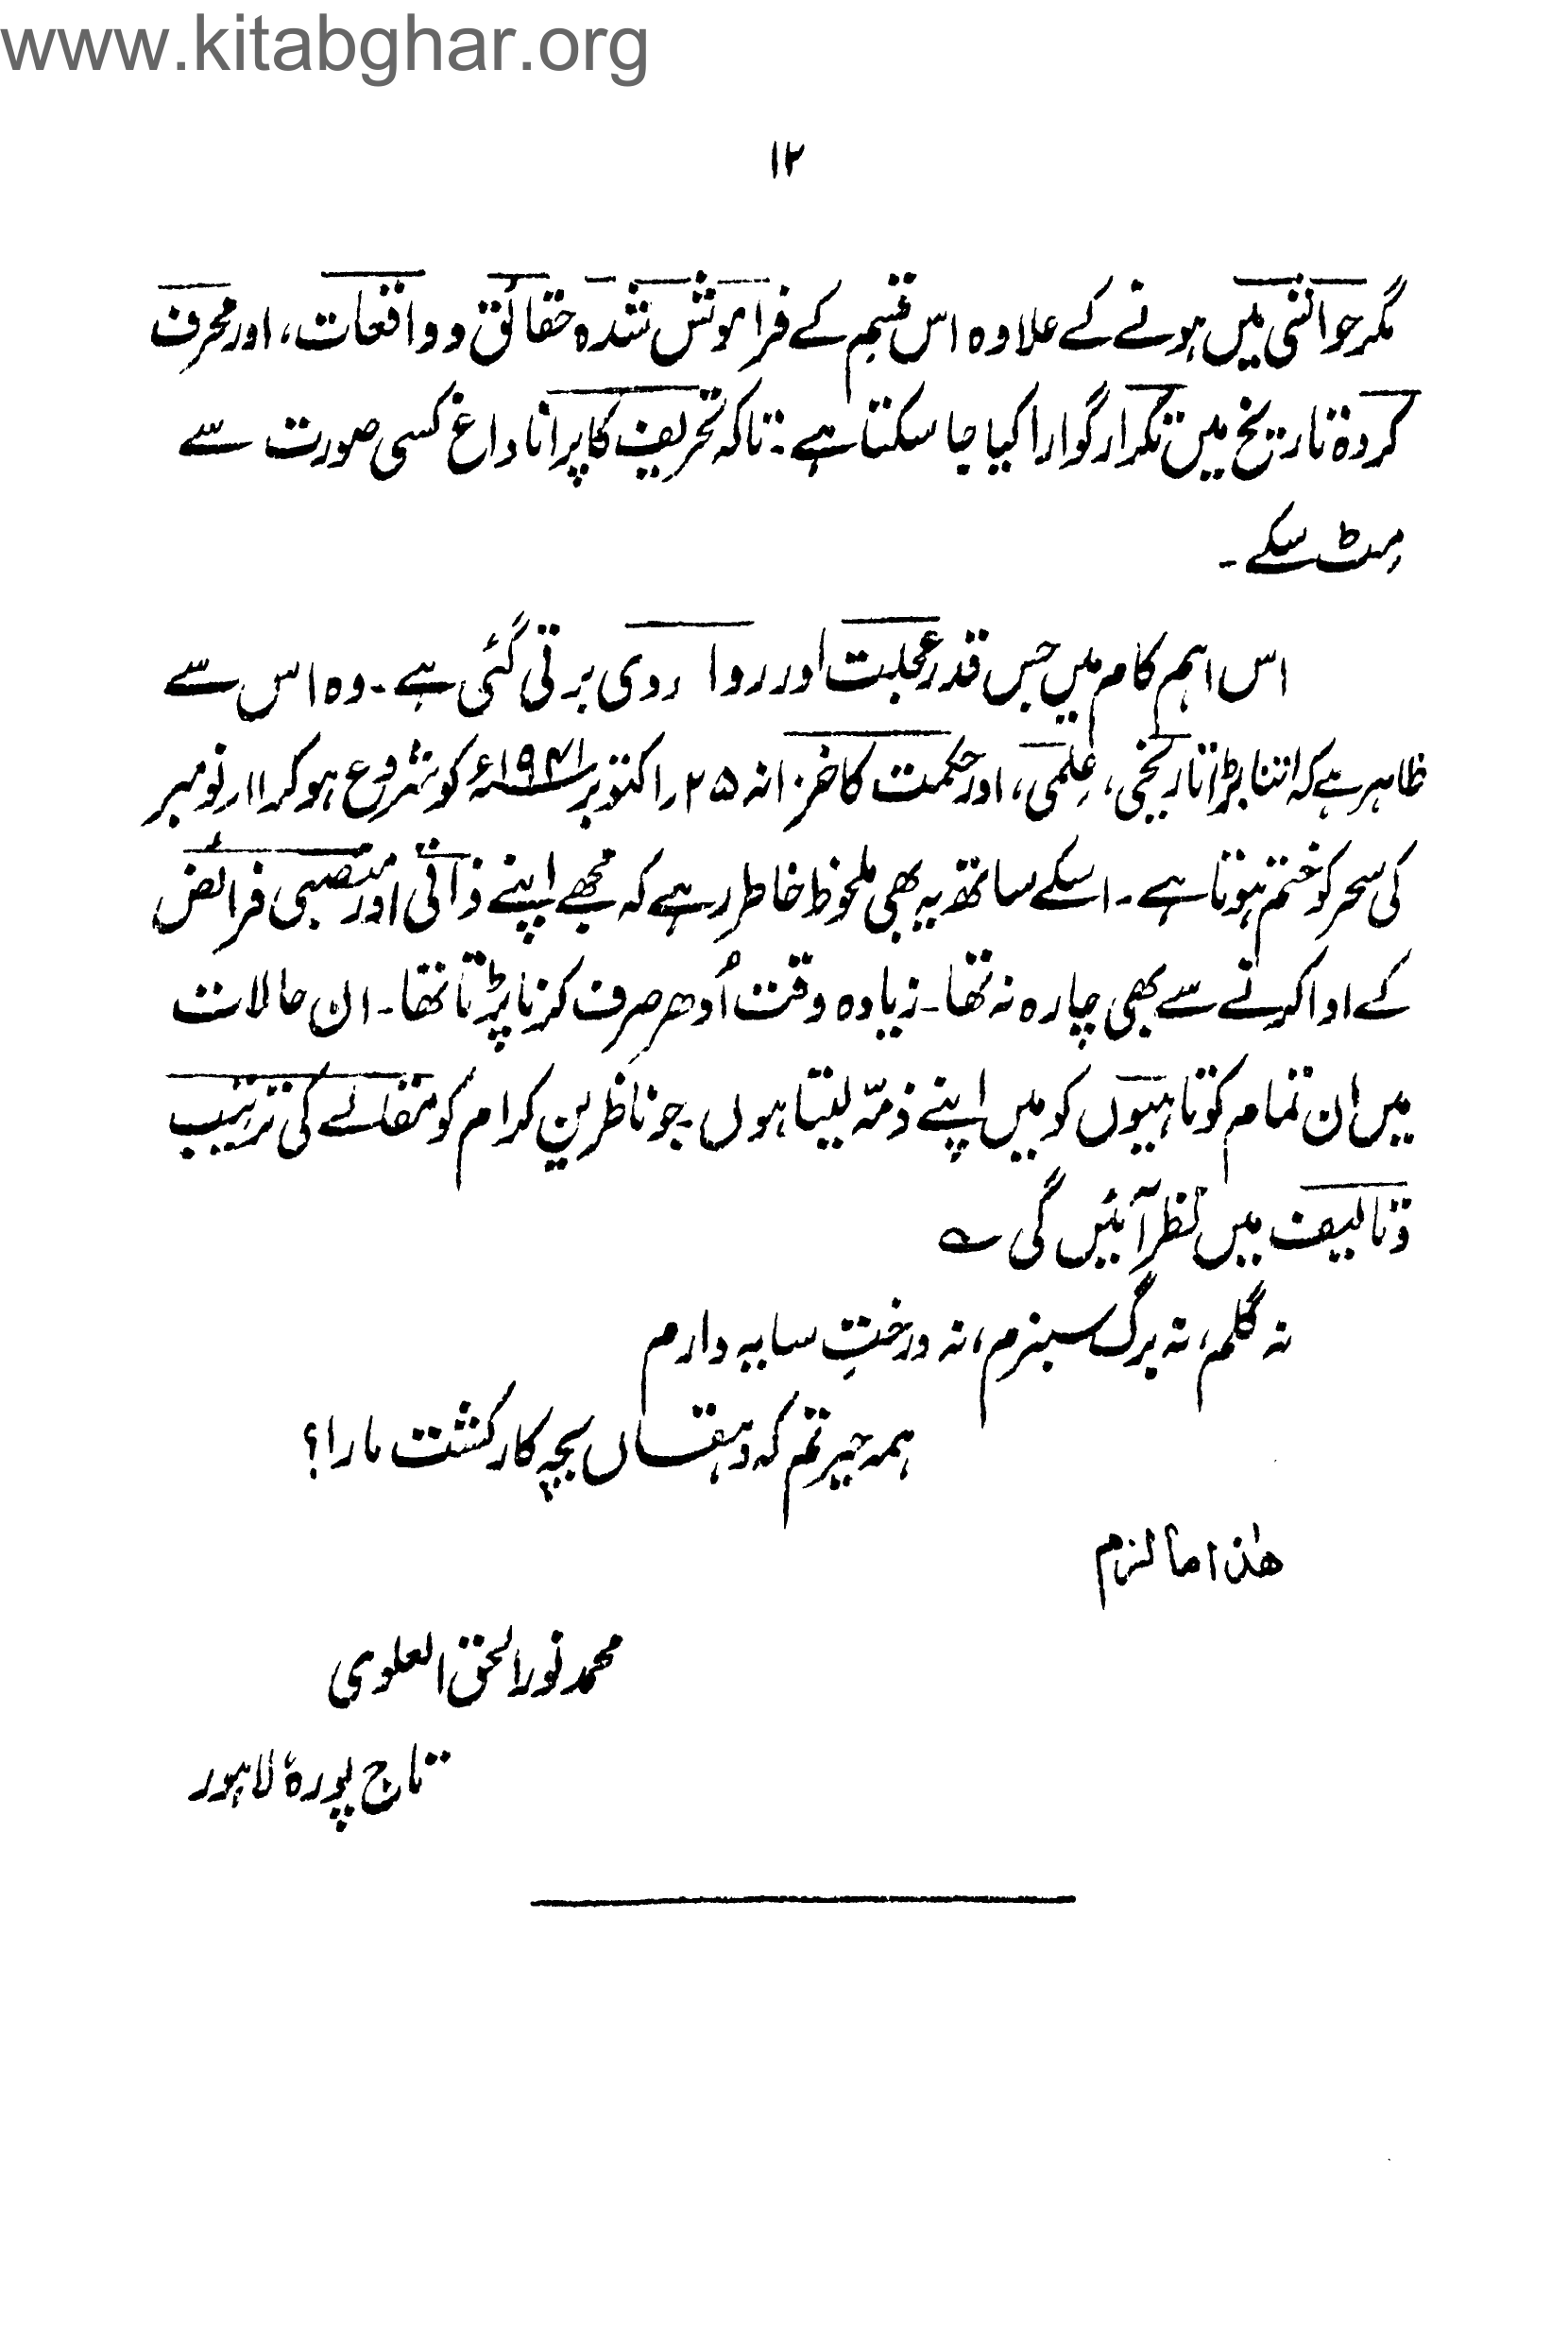 www.kitabghar.org
۱۲
مگر حواشی میں ہونے کے علاوہ اس قسم کے فراموش شدہ حقائق و واقعات، اور محرف
کردہ تاریخ میں تکرار گوارا کیا جا سکتا ہے۔ تاکہ تحریف کا پرانا داغ کسی صورت سے
مِٹ سکے۔
اس اہم کام میں جس قدر عجلت اور روا روی برتی گئی ہے۔ وہ اس سے
ظاہر ہے کہ اتنا بڑا تاریخی، عِلمی، اور حکمت کا خزانہ ۲۵ر اکتوبر ۱۹۴۱ء کو شروع ہو کر ۱۱ر نومبر
کی سحر کو ختم ہوتا ہے۔ اسکے ساتھ یہ بھی ملحوظ خاطر رہے کہ مجھے اپنے ذاتی اور منصبی فرائض
کے ادا کرنے سے بھی چارہ نہ تھا۔ زیادہ وقت اُدھر صرف کرنا پڑتا تھا۔ ان حالات
میں ان تمام کوتاہیوں کو میں اپنے ذمّہ لیتا ہوں۔ جو ناظرینِ کرام کو مقالے کی ترتیب
و تالیف میں نظر آئیں گی ؎
نہ گلم، نہ برگ سبزم، نہ درختِ سایہ دارم
ہمہ حیرتم کہ دہقاں بچہ کار کشت مارا؟
ھٰذا ما لزم
محمد نور الحق العلوی
تاج پورہٗ لاہور